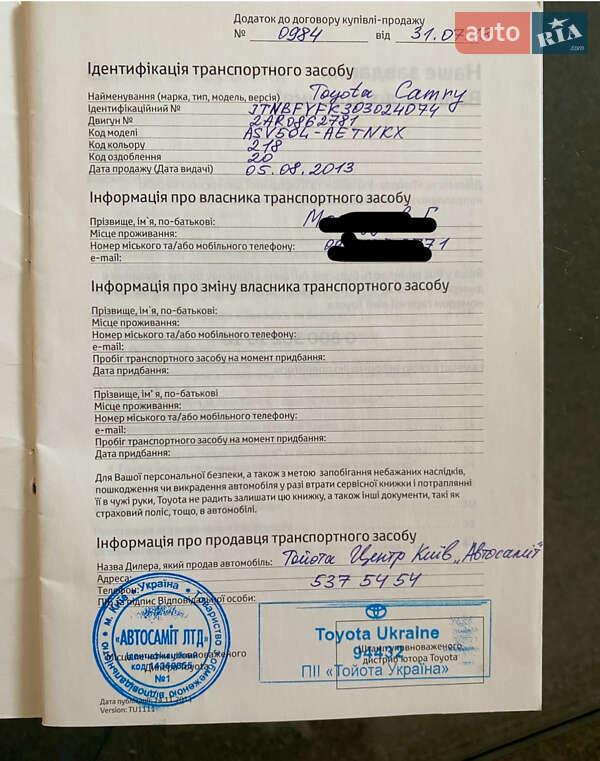 Додаток до договору купівлі-продажу
№ 0984 від 31.07.
auto RIA .com
Ідентифікація транспортного засобу
Найменування (марка, тип, модель, версія) Toyota Camry
Ідентифікаційний № JTNBFYFK303024074
Двигун № 2AR0862781
Код моделі ASV50L-AETNKX
Код кольору 218
Код оздоблення 20
Дата продажу (Дата видачі) 05.08.2013
Інформація про власника транспортного засобу
Прізвище, ім`я, по-батькові:
Місце проживання:
Номер міського та/або мобільного телефону: 71
e-mail:
Інформація про зміну власника транспортного засобу
Прізвище, ім`я, по-батькові:
Місце проживання:
Номер міського та/або мобільного телефону:
e-mail:
Пробіг транспортного засобу на момент придбання:
Дата придбання:
Прізвище, ім`я, по-батькові
Місце проживання:
Номер міського та/або мобільного телефону:
e-mail:
Пробіг транспортного засобу на момент придбання:
Дата придбання:
Для Вашої персональної безпеки, а також з метою запобігання небажаних наслідків,
пошкодження чи викрадення автомобіля у разі втрати сервісної книжки і потраплянні
її в чужі руки, Toyota не радить залишати цю книжку, а також інші документи, такі як
страховий поліс, тощо, в автомобілі.
Інформація про продавця транспортного засобу
Назва Дилера, який продав автомобіль: Тойота Центр Київ „Автосаміт"
Адреса:
Телефон: 537 54 54
ПІБ та підпис Відповідальної особи:
м. Київ * Україна * Товариство з обмеженою відповідальністю
«АВТОСАМІТ ЛТД»
Ідентифікаційний
код 14360855
№1
Toyota Ukraine
94432
ПІІ «Тойота Україна»
Штамп уповноваженого
дистриб'ютора Toyota
Місце штампу уповноваженого
Дилера Toyota
Дата публікації:
Version: TU1111